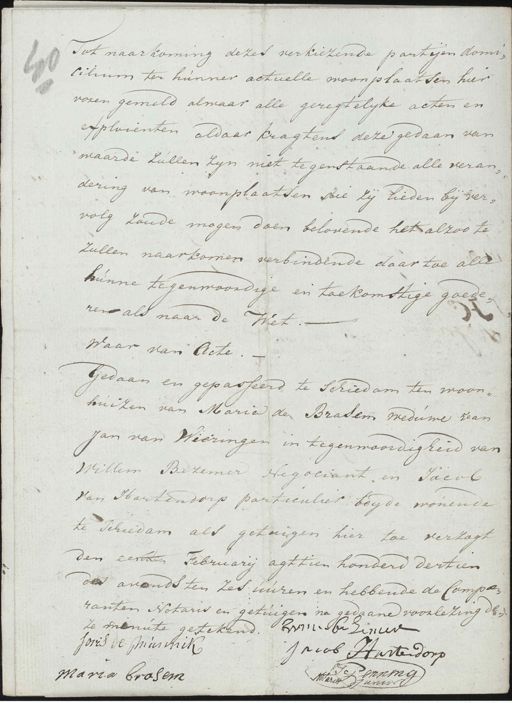 40
Tot naarkoming dezes verkiezende partijen domi,
cilium ten hunner actuelle woonplaatsen hier
voren gemeld alwaar alle geregtelyke acten en
exploicten aldaar kragtens deze gedaan van
waarde zullen zyn niet tegenstaande alle veran,
dering van woonplaatsen die zij lieden bij ver,
volg zoude mogen doen belovende het alzoo te
zullen naarkomen verbindende daar toe alle
hunne tegenwoordige en toekomstige goede,
ren als naar de Wet. —
Waar van Acte. —
Gedaan en gepasseerd te Schiedam ten woon,
huizen van Maria de Brasem weduwe van
Jan van Wieringen in tegenwoordigheid van
Willem Bezemer Negociant en Jacob
van Hartendorp particulier beyde wonende
te Schiedam als getuigen hier toe verzogt
den eersten February agttien honderd dertien
des avonds ten zes uuren en hebbende de Compa,
ranten Notaris en getuigen na gedane voorlezing de
ze minute getekend.
Jacob Hartendorp
Maria brosem